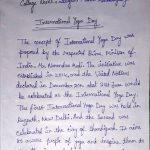 International Yoga Day
The concept of International Yoga Day was
proposed by the respected Prime Minister of
India, Mr. Narendra Modi. The initiative was
established in 2014, and the United Nations
declared in December 2014 that 21st June
would be celebrated as the International Yoga Day.
The first International Yoga Day was held in
New Delhi. And the second was
celebrated in the city of Chandigarh. It aims
to access people of yoga and inspire them to